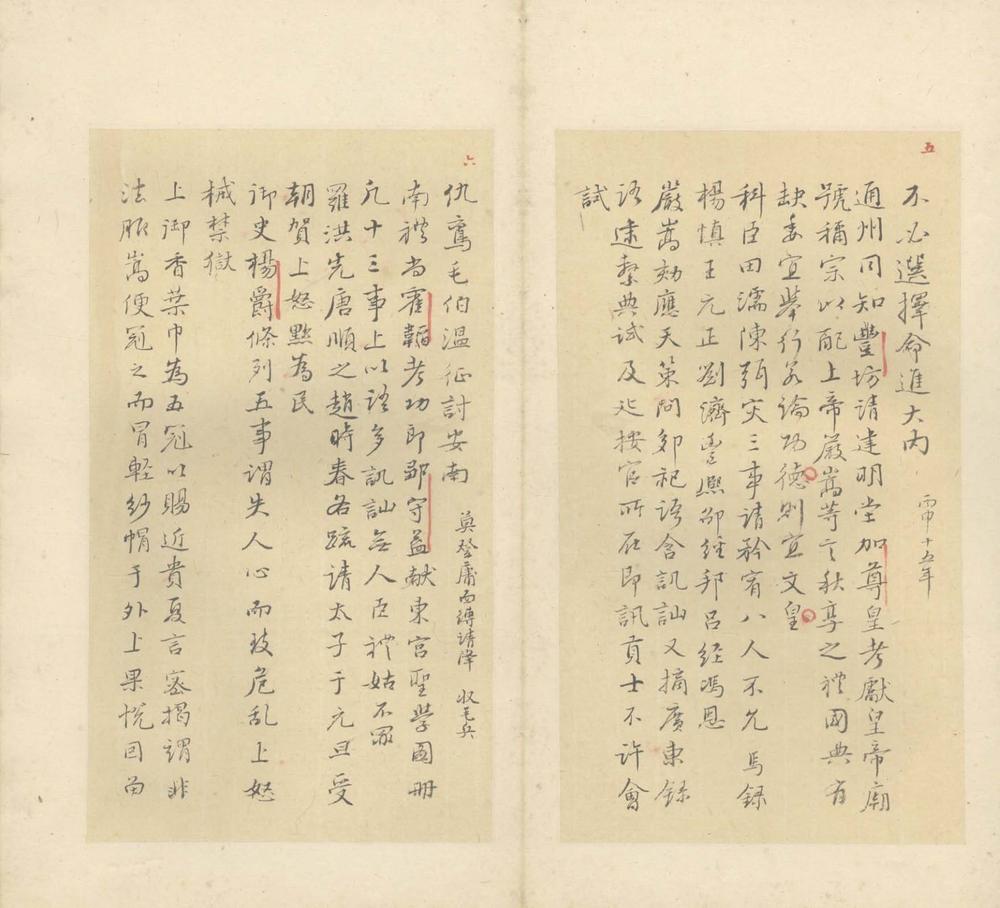 五
不必選擇命進大內　丙申十五年
通州同知豐坊請建明堂加尊皇考獻皇帝廟
號稱宗以配上帝嚴嵩等言秋享之禮國典有
缺委宜舉行若論功德則宜文皇
科臣田濡陳弭灾三事請矜宥八人不允馬錄
楊慎王元正劉濟豊熙邵經邦呂經馮恩
嚴嵩劾應天策問郊祀語含訕訕又摘廣東錄
語逮繫典試及廵按官所在即訊貢士不許會
試
六
仇鸞毛伯温征討安南　莫登庸面縛請降　收毛兵
南禮尚霍韜考功郎鄒守益献東宮聖學圖冊
凢十三事上以語多訕訕無人臣禮姑不罪
羅洪先唐順之趙時春各疏請太子于元旦受
朝賀上怒黜為民
御史楊爵條列五事謂失人心而致危乱上怒
械禁獄
上御香葉巾為五冠以賜近貴夏言密揭謂非
法服嵩便冠之而冒軽紗帽于外上果悅囙畄